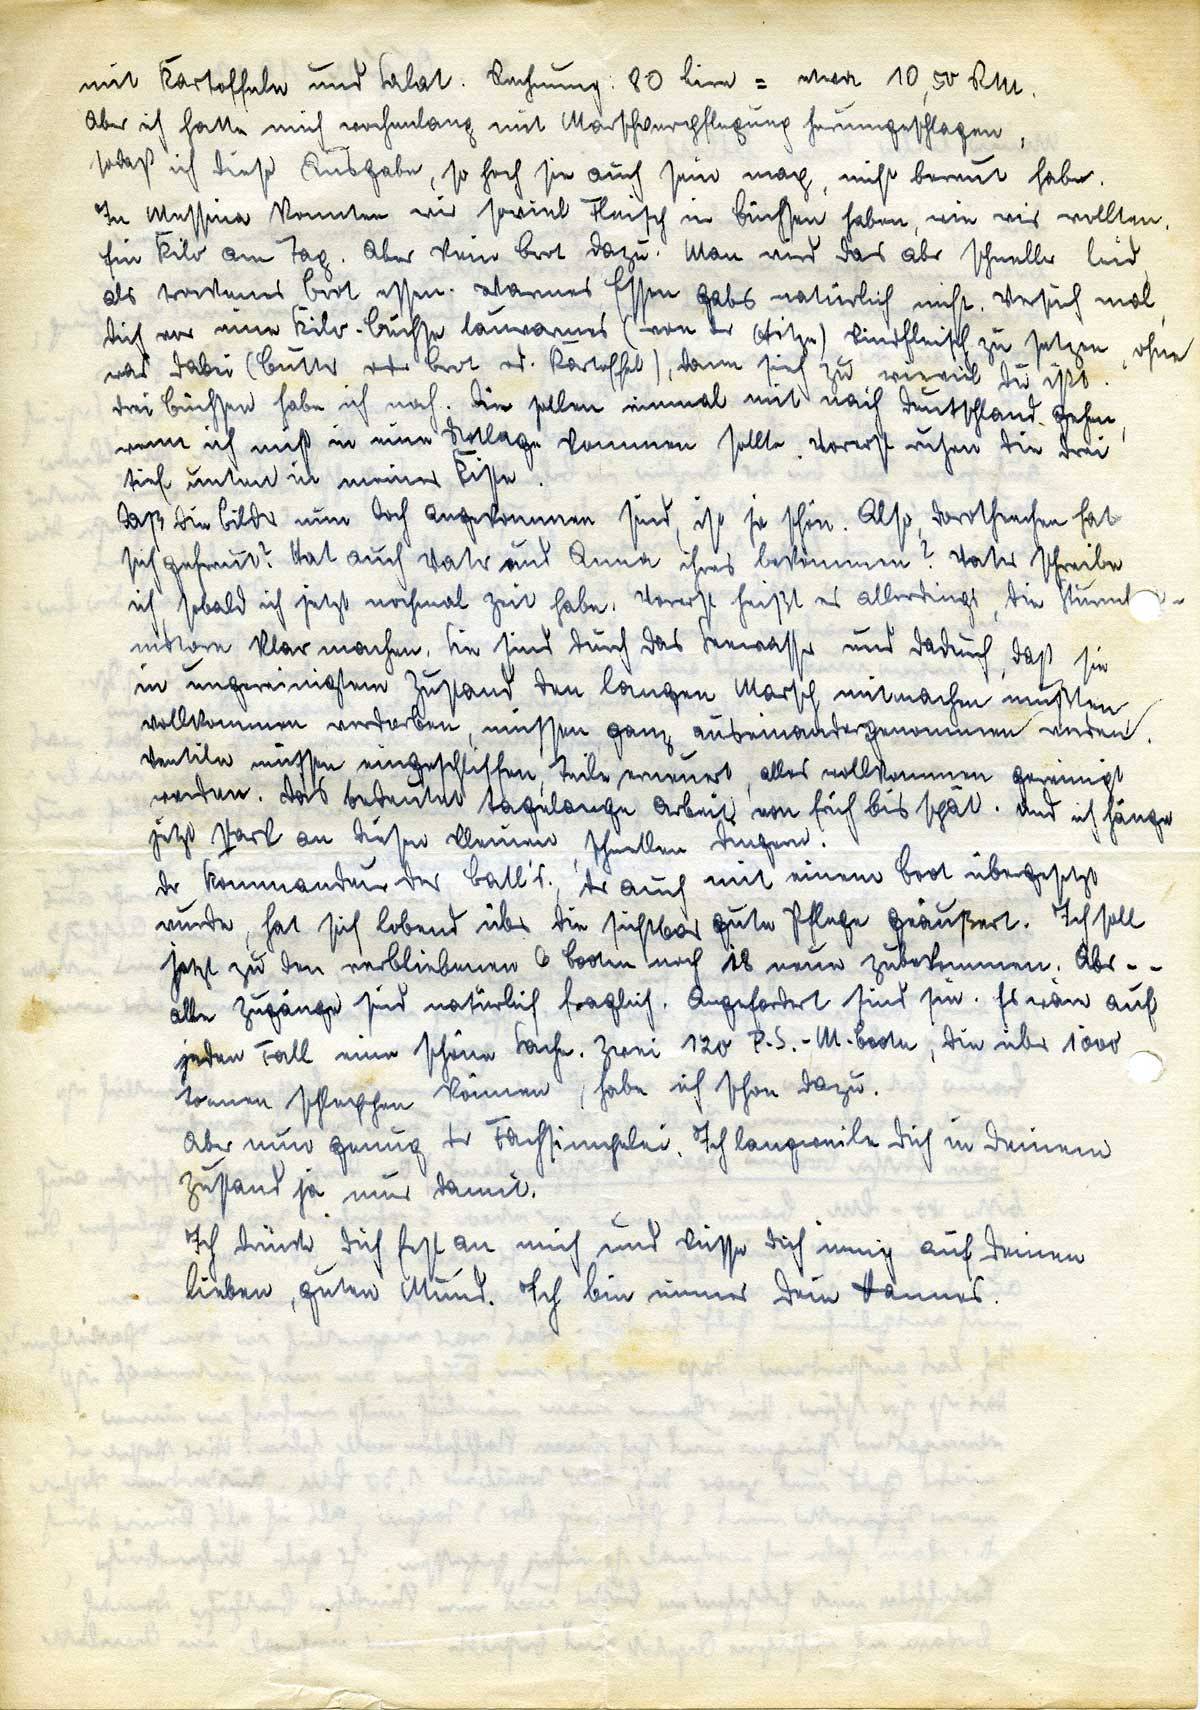 mit Kartoffeln und Salat. Rechnung: 80 Lire = etwa 10,50 RM.
Aber ich hatte mich wochenlang mit Marschverpflegung herumgeschlagen,
sodaß ich diese Ausgabe, so hoch sie auch sein mag, nicht bereut habe.
In Messina konnten wir soviel Fleisch in Büchsen haben, wie wir wollten.
Ein Kilo am Tag. Aber kein Brot dazu. Man wird das aber schneller leid,
als trockenes Brot essen. Warmes Essen gabs natürlich nicht. Versuch mal,
dich vor eine Kilo-Büchse lauwarmes (von der Hitze) Rindfleisch zu setzen, ohne
was dabei (Butter oder Brot od. Kartoffel), dann sieh zu wieviel du ißt.
Drei Büchsen habe ich noch. Die sollen einmal mit nach Deutschland gehen,
wenn ich nicht in eine Notlage kommen sollte. Vorerst ruhen die drei
tief unten in meiner Kiste.
Daß die Bilder nun doch angekommen sind, ist ja schön. Also, Dorotheechen hat
sich gefreut? Hat auch Vater und Anna ihres bekommen? Vater schreibe
ich, sobald ich jetzt nochmal Zeit habe. Vorerst heißt es allerdings, die Sturmbo-
motore klar machen. Sie sind durch das Seewasser und dadurch, daß sie
in ungereinigtem Zustand den langen Marsch mitmachen mußten
vollkommen verdorben, müssen ganz auseinandergenommen werden.
Ventile müssen eingeschliffen, Teile erneuert, alles vollkommen gereinigt
werden. Das bedeutet tagelange Arbeit, von früh bis spät. Und ich hänge
jetzt stark an diesen kleinen, schnellen Dingern.
Der Kommandeur der Batl's., der auch mit einem Boot übergesetzt
wurde, hat sich lobend über die sichtbar gute Pflege geäußert. Ich soll
jetzt zu den verbliebenen 6 Booten noch 18 neue zubekommen. Aber - -
alle Zugänge sind natürlich fraglich. Angefordert sind sie. Es wäre auf
jeden Fall eine schöne Sache. Zwei 120 P.S.-M-Boote, die über 1000
Tonnen schleppen können, habe ich schon dazu.
Aber nun genug der Fachsimpelei. Ich langweile dich in deinem
Zustand ja nur damit.
Ich drücke dich fest an mich und küsse dich innig auf deinen
lieben, guten Mund. Ich bin immer dein Hannes.